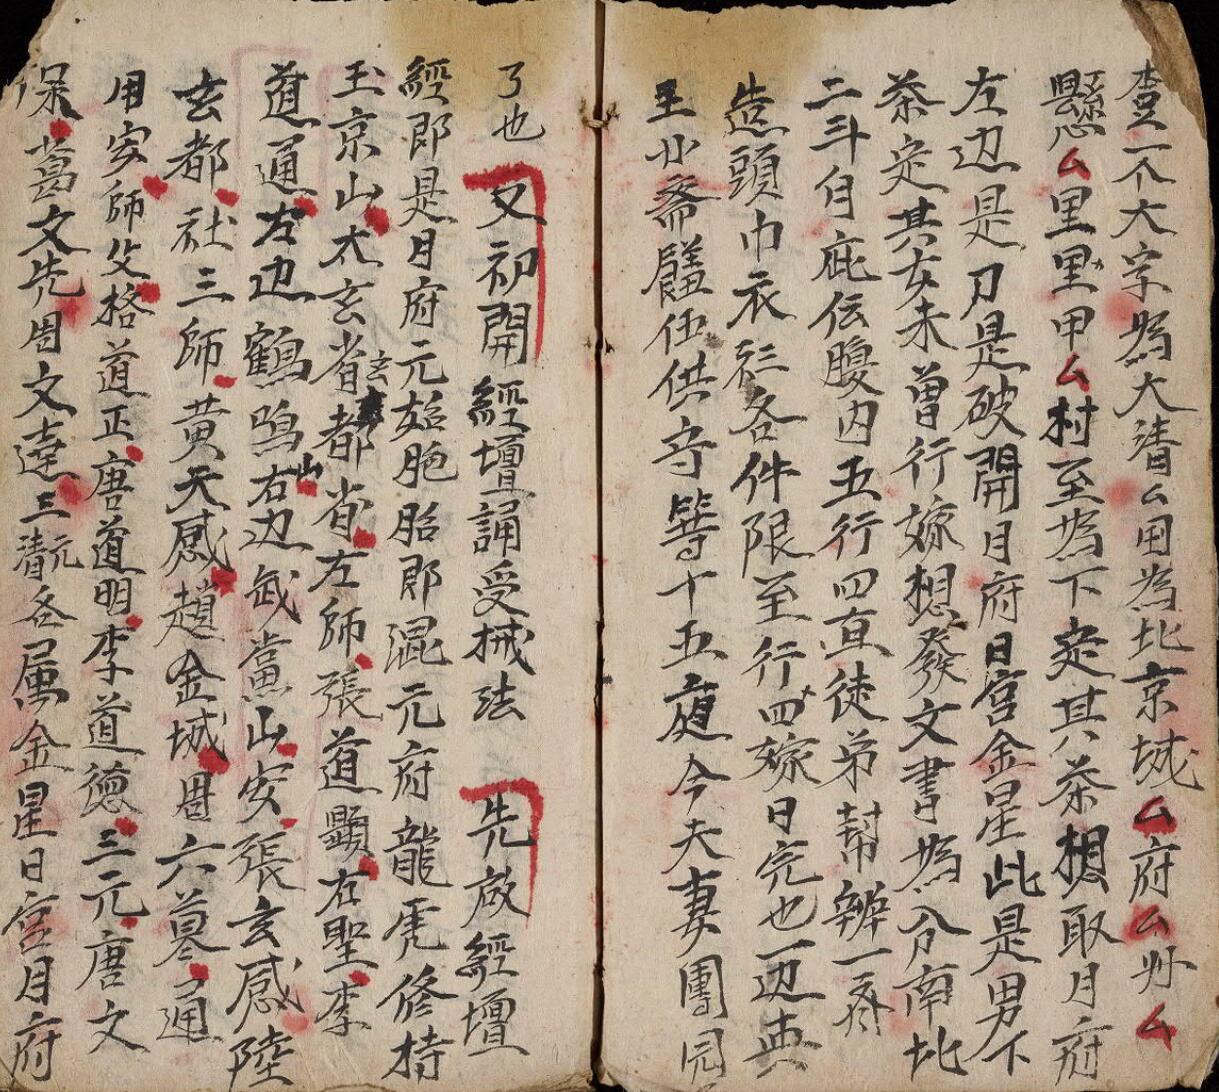 查一个大字為大清厶国為北京城厶府厶州厶
縣厶里里甲厶村至為下定其茶想取月府
左边是刀是破開月府日宫金星此是男下
茶定其女未曾行嫁想發文書為分南北
二斗自庇伝腹内五行四直徒弟幇辦一斉
造頭巾衣衫各件限至行四嫁日完也一边典
王廿斎䭔伍供守等十五夜今夫妻團园
了也 又初開經壇誦受械法 先啟經壇
經郎是月府元始胞胎郎混元府龍虎修持
玉京山太玄省都省左師張道顯右聖李
道通左边鶴鳴山右边武當山安張玄感陸
玄都社三師黄天感趙金城周六墓通
用安師父格道正唐道明李道德三元唐文
保葛文先周文達三清元各属金星日宫月府